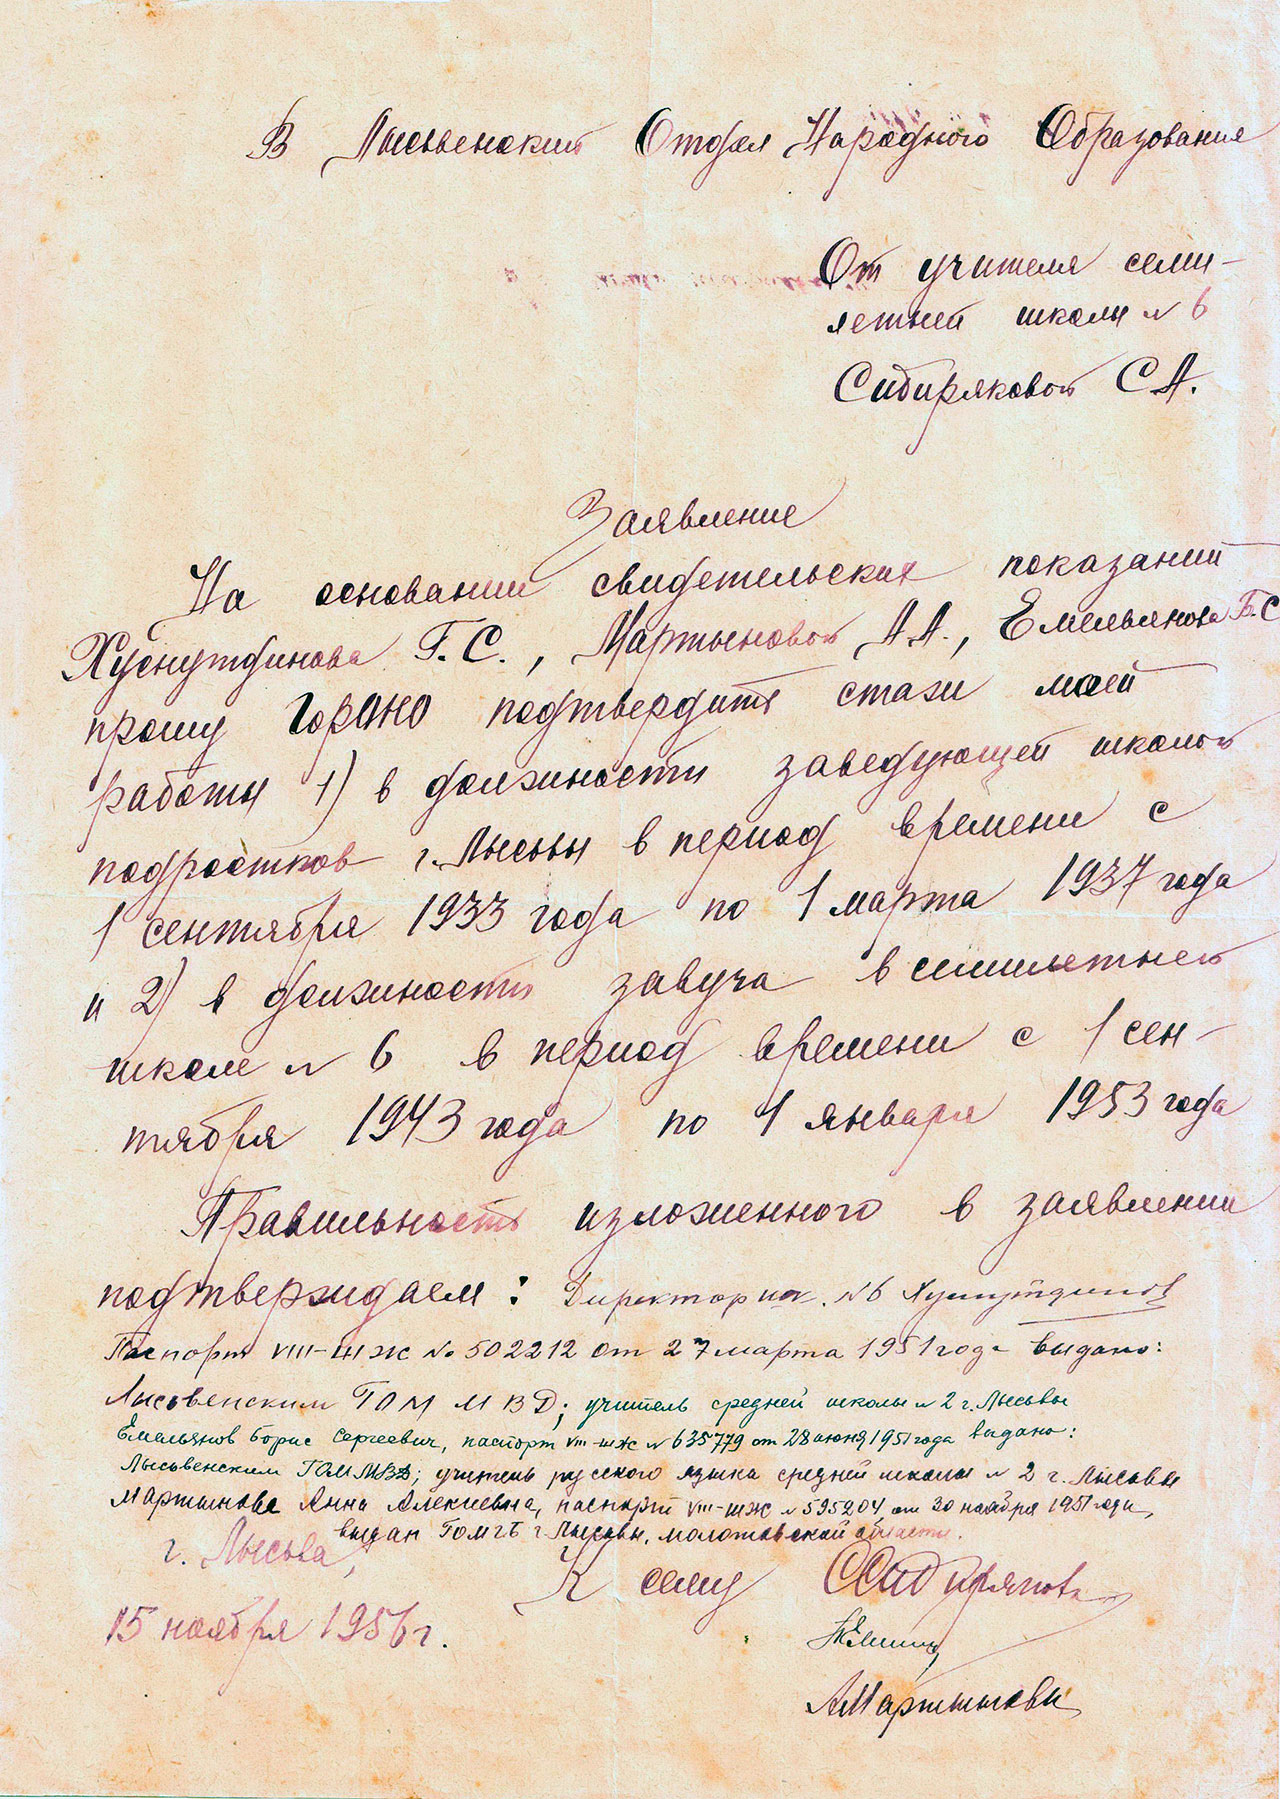 В Лысьвенский Отдел Народного Образования
От учителя семи-
летней школы № 6
Сибиряковой С А.
Заявление
На основании свидетельских показаний
Хуснутдинова Г. С., Мартыновой А А., Емельянова Б. С
прошу ГорОНО подтвердить стаж моей
работы 1) в должности заведующей школой
подростков г. Лысьвы в период времени с
1 сентября 1933 года по 1 марта 1937 года
и 2) в должности завуча в семилетней
школе № 6 в период времени с 1 сен-
тября 1943 года по 1 января 1953 года
Правильность изложенного в заявлении
подтверждаем: Директор шк. № 6 Хуснутдинов
Паспорт VIII-ШЖ № 502212 от 27 марта 1951 года выдано:
Лысьвенским ГОМ МВД; учитель средней школы № 2 г. Лысьвы
Емельянов Борис Сергеевич, паспорт VIII-ШЖ № 635779 от 28 июня 1951 года выдано:
Лысьвенским ГОМ МВД; учитель русского языка средней школы № 2 г. Лысьвы
Мартынова Анна Алексеевна, паспорт VIII-ШЖ № 595204 от 30 ноября 1951 года,
выдан ГОМ г. Лысьвы, Молотовской области.
г. Лысьва, К сему ССибирякова
15 ноября 1956 г.
АМартынова